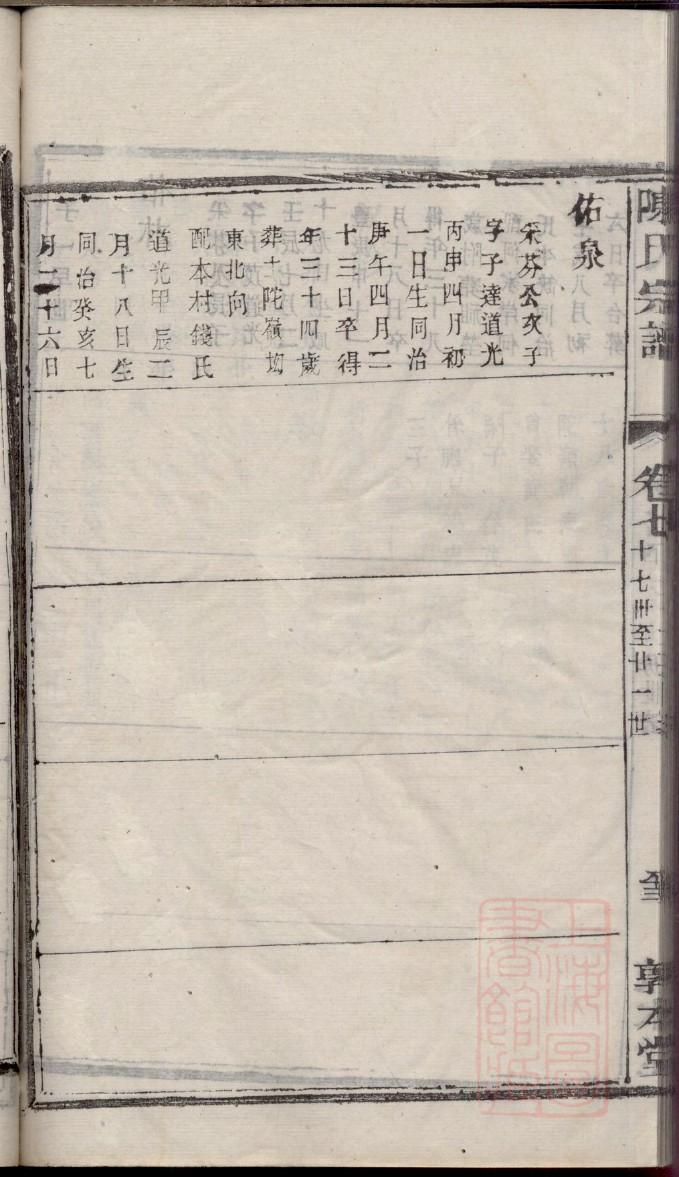 陳氏宗譜
卷七
十七卅至廿一世
敦本堂
佑泉
采芬公次子
字子達道光
丙申四月初
一日生同治
庚午四月二
十三日卒得
年三十四歲
葬土陀嶺塢
東北向
配本村錢氏
道光甲辰二
月十八日生
同治癸亥七
月二十六日
上海圖書館藏